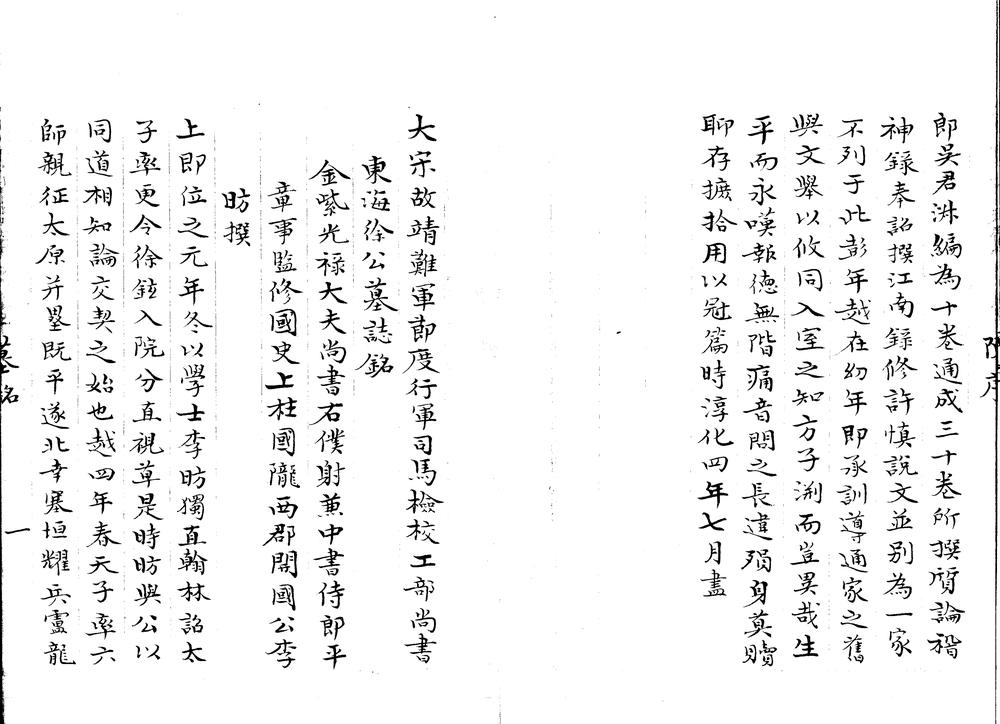 郎吳君淑編為十卷通成三十卷所撰質論稽
神錄奉詔撰江南錄修許慎說文並别為一家
不列于此彭年越在幼年即承訓導通家之舊
與文舉以攸同入室之知方子淵而豈異哉生
平而永嘆報德無階痛音問之長違殞身莫贖
聊存摭拾用以冠篇時淳化四年七月盡
大宋故靖難軍節度行軍司馬檢校工部尚書
東海徐公墓誌銘
金紫光禄大夫尚書右僕射兼中書侍郎平
章事監修國史上柱國隴西郡開國公李
昉撰
上即位之元年冬以學士李昉獨直翰林詔太
子率更令徐鉉入院分直視草是時昉與公以
同道相知論交契之始也越四年春天子率六
師親征太原并壘既平遂北幸塞垣耀兵盧龍
墓銘
一